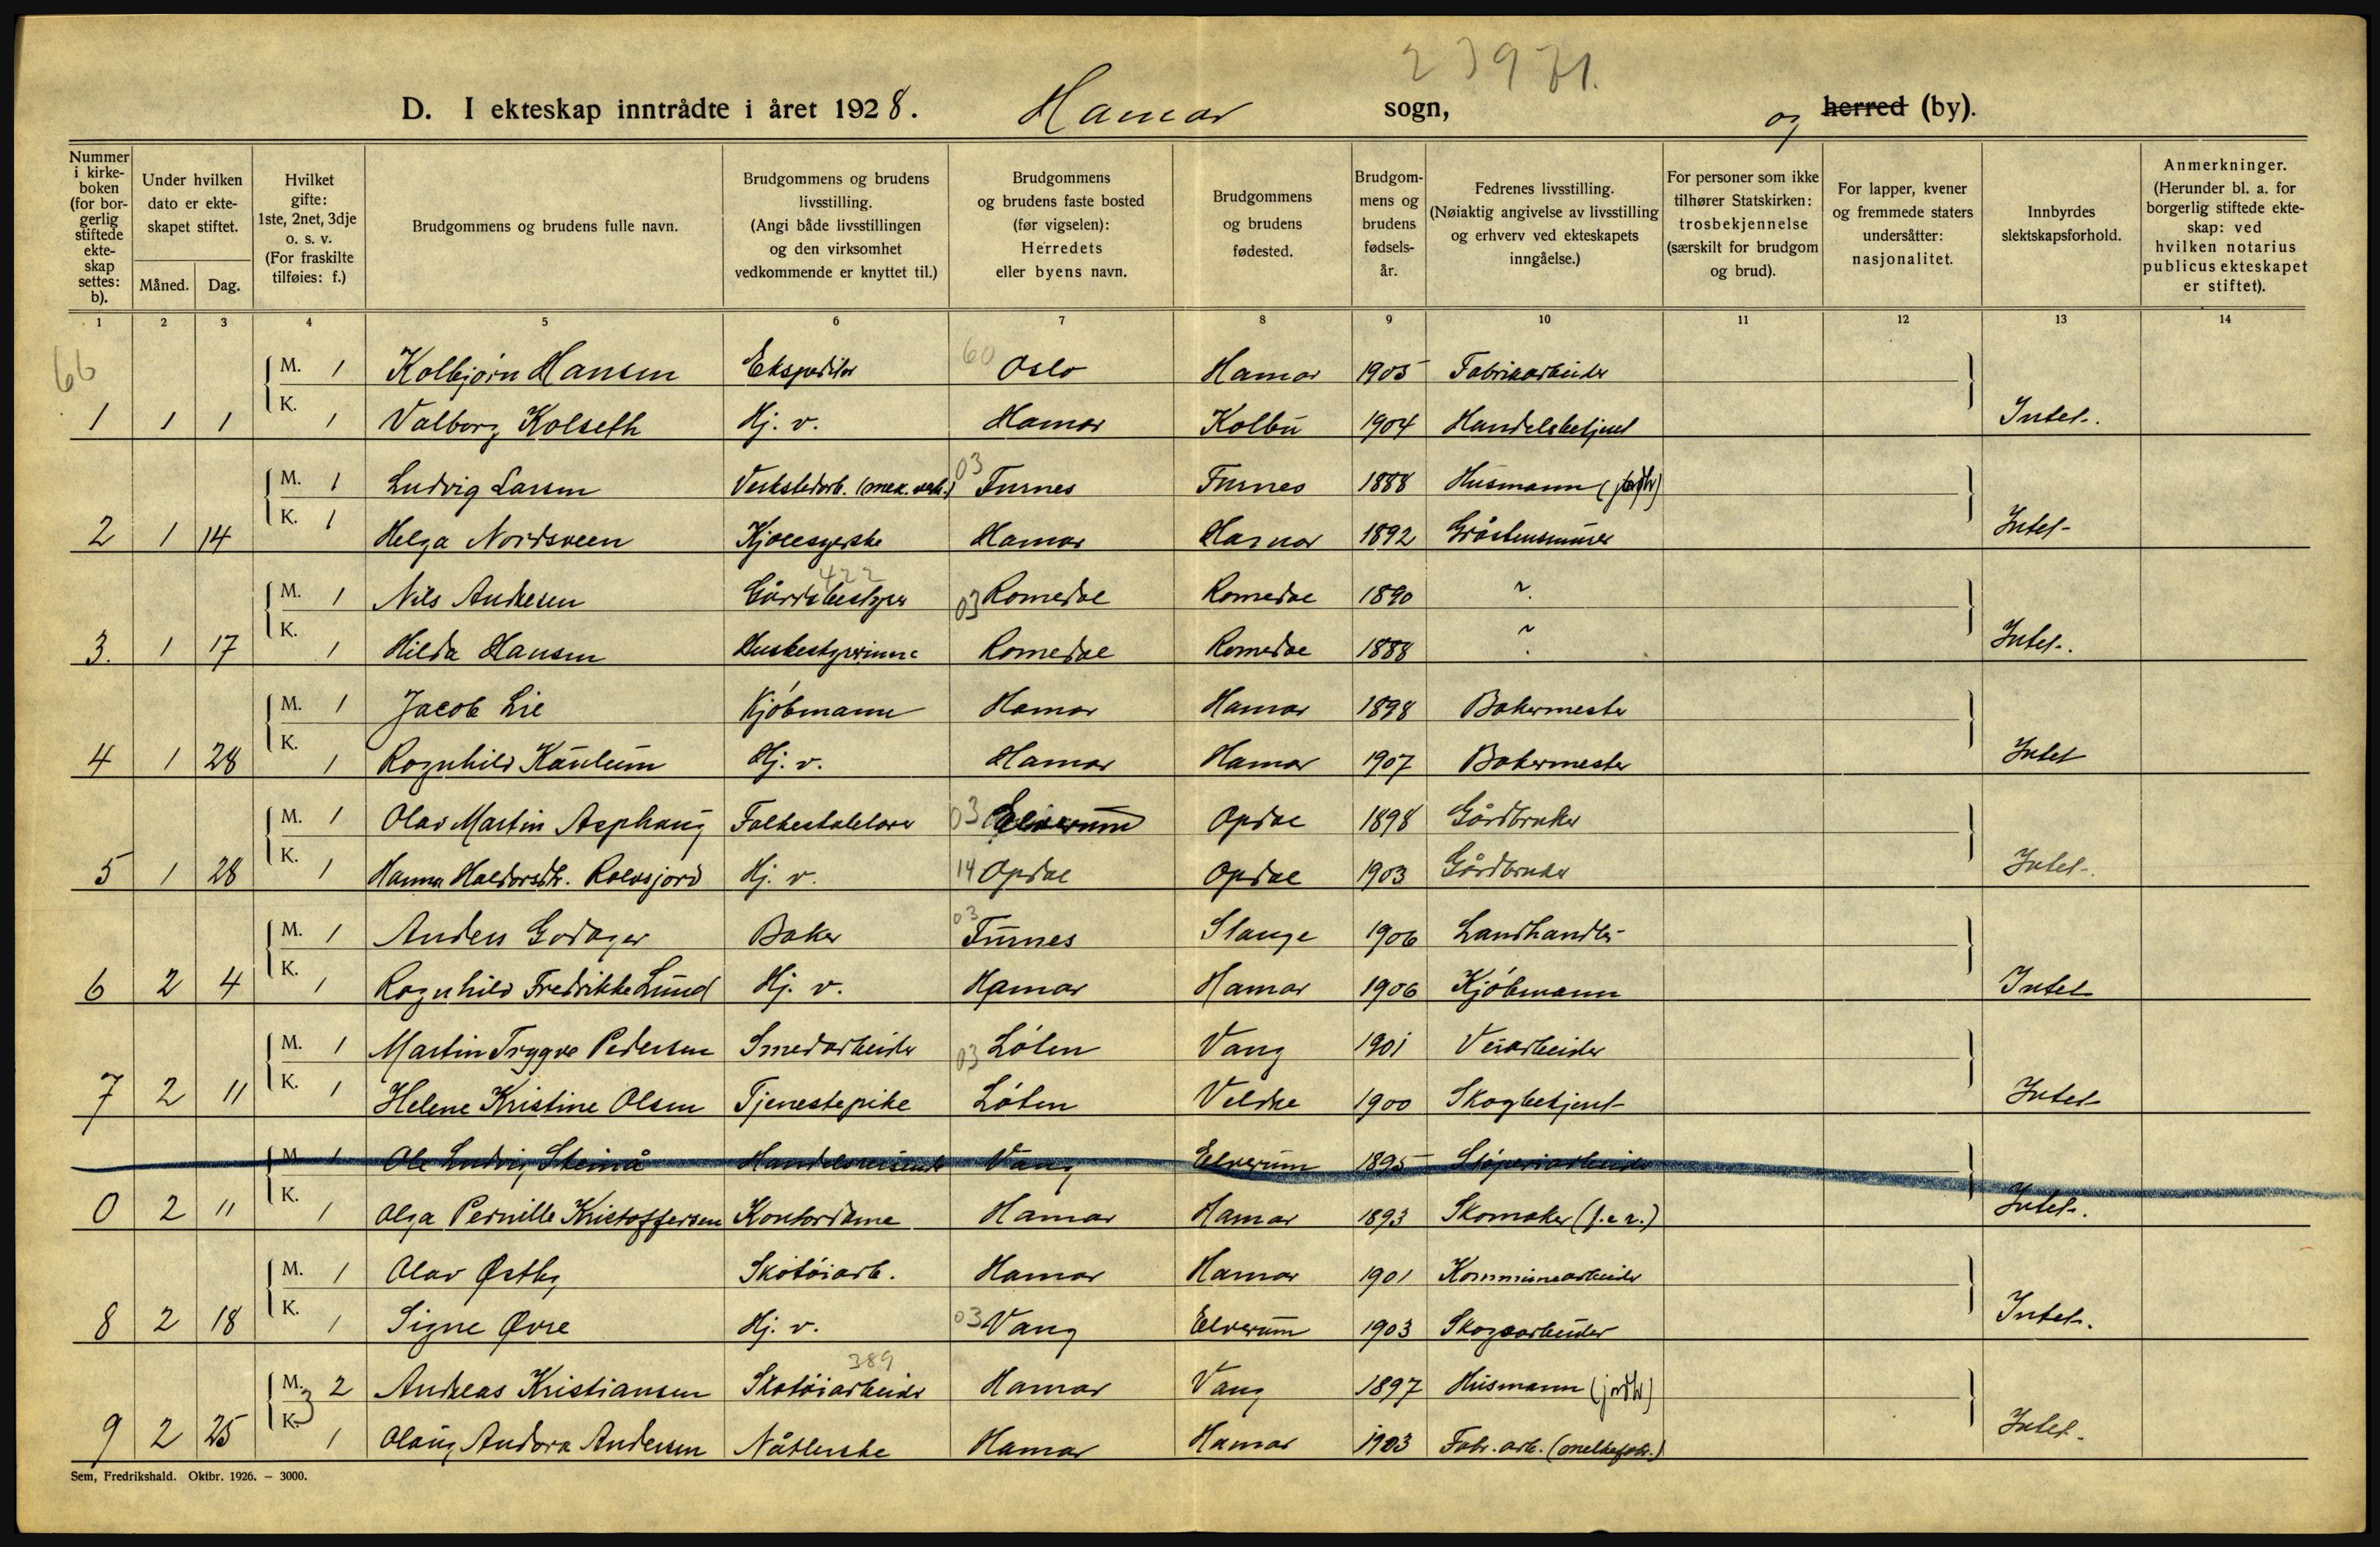 2 3 9 71.
D. I ekteskap inntrådte i året 1928. Hamar sogn, og herred (by).
Nummer i kirkeboken (for borgerlig stiftede ekteskap settes: b).
Under hvilken dato er ekteskapet stiftet.
Måned. Dag.
Hvilket gifte: 1ste, 2net, 3dje o. s. v. (For fraskilte tilføies: f.)
Brudgommens og brudens fulle navn.
Brudgommens og brudens livsstilling. (Angi både livsstillingen og den virksomhet vedkommende er knyttet til.)
Brudgommens og brudens faste bosted (før vigselen): Herredets eller byens navn.
Brudgommens og brudens fødested.
Brudgommens og brudens fødselsår.
Fedrenes livsstilling. (Nøiaktig angivelse av livsstilling og erhverv ved ekteskapets inngåelse.)
For personer som ikke tilhører Statskirken: trosbekjennelse (særskilt for brudgom og brud).
For lapper, kvener og fremmede staters undersåtter: nasjonalitet.
Innbyrdes slektskapsforhold.
Anmerkninger. (Herunder bl. a. for borgerlig stiftede ekteskap: ved hvilken notarius publicus ekteskapet er stiftet).
1 2 3 4 5 6 7 8 9 10 11 12 13 14
66
M. 1 Kolbjørn Hansen Ekspeditør 60 Oslo Hamar 1905 Fabrikarbeider
1 1 1 K. 1 Valborg Kolseth Hj. v. Hamar Kolbu 1904 Handelsbetjent Intet.
M. 1 Ludvig Larsen Verkstedarb. (mek. verk.) 03 Furnes Furnes 1888 Husmann (jordbr)
2 1 14 K. 1 Helga Nordsveen Kjolesyerske Hamar Hamar 1892 Gråstensmurer Intet
422
M. 1 Nils Andersen Gårdsbestyrer 03 Romedal Romedal 1890 ~
3. 1 17 K. 1 Hilda Hansen Husbestyrerinne Romedal Romedal 1888 ~ Intet.
M. 1 Jacob Lie Kjøbmann Hamar Hamar 1898 Bakermester
4 1 28 K. 1 Ragnhild Kaulum Hj. v. Hamar Hamar 1907 Bakermester Intet
M. 1 Olav Martin Asphaug Folkeskolelærer 03 Elverum Opdal 1898 Gårdbruker
5 1 28 K. 1 Hanna Haldorsdtr. Rolvsjord Hj. v. 14 Opdal Opdal 1903 Gårdbruker Intet.
M. 1 Anders Godager Baker 03 Furnes Stange 1906 Landhandler
6 2 4 K. 1 Ragnhild Fredrikke Lund Hj. v. Hamar Hamar 1906 Kjøbmann Intet
M. 1 Martin Trygve Pedersen Smedarbeider 03 Løten Vang 1901 Veiarbeider
7 2 11 K. 1 Helene Kristine Olsen Tjenestepike Løten Veldre 1900 Skogbetjent Intet
M. 1 Ole Ludvig Steinå Handelsreisende Vang Elverum 1895 Støperiarbeider
0 2 11 K. 1 Olga Pernille Kristoffersen Kontordame Hamar Hamar 1893 Skomaker (f. e. r.) Intet.
M. 1 Olav Østby Skotøiarb. Hamar Hamar 1901 Kommunearbeider
8 2 18 K. 1 Signe Øvre Hj. v. 03 Vang Elverum 1903 Skogsarbeider Intet.
389
M. 3 2 Andreas Kristiansen Skotøiarbeider Hamar Vang 1897 Husmann (jordbr)
9 2 25 K. 1 Olaug Andora Andersen Nåtlerske Hamar Hamar 1903 Fabr. arb. (melkefabr.) Intet.
Sem, Fredrikshald. Oktbr. 1926. – 3000.